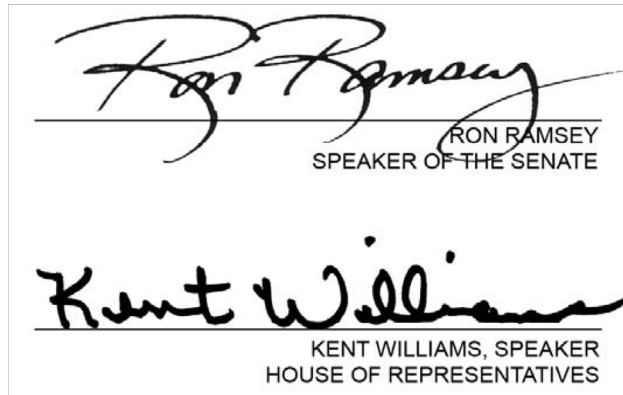 Ron Ramsey
RON RAMSEY
SPEAKER OF THE SENATE
Kent Williams
KENT WILLIAMS, SPEAKER
HOUSE OF REPRESENTATIVES